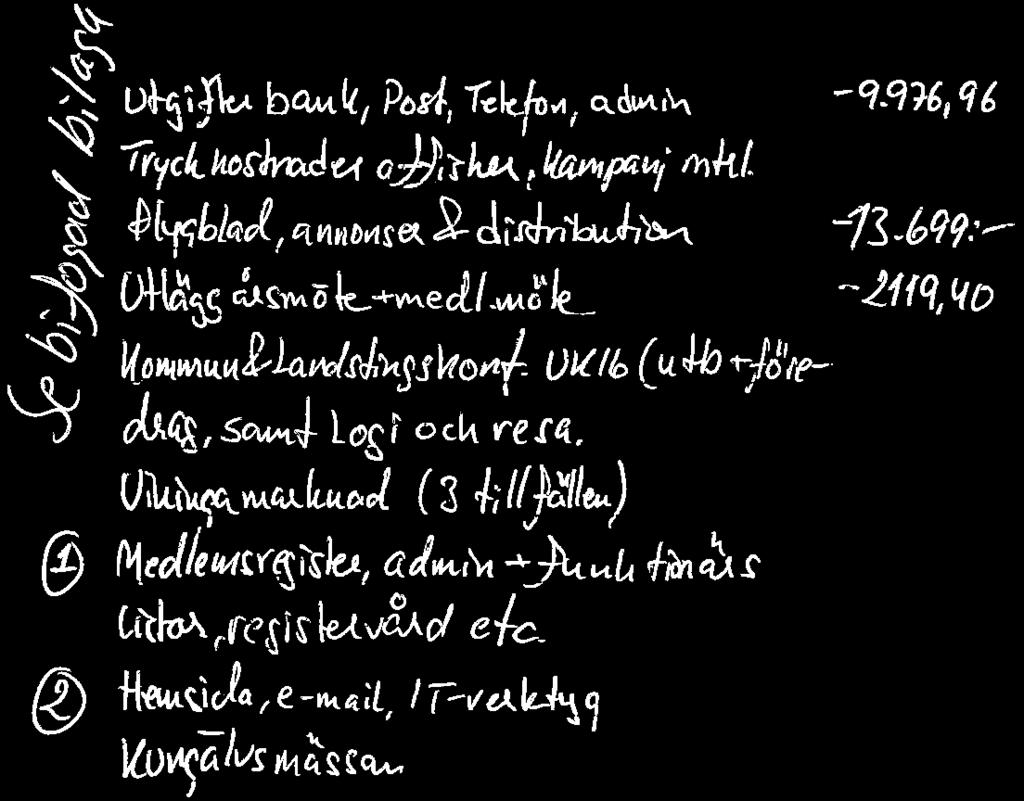 Se bifogad bilaga
Utgifter bank, Post, Telefon, admin -9.976,96
Tryckkostnader affisher, kampanj mtrl.
Flygblad, annonser & distribution -13.699:-
Utlägg årsmöte + medl.möte -2119,40
Kommun & Landstingskonf. UK16 (utb + före-
drag, samt Logi och resa.
Vikingamarknad (3 tillfällen)
① Medlemsregister, admin + funktionärs
listor, registervård etc.
② Hemsida, e-mail, IT-verktyg
Kungälvsmässan